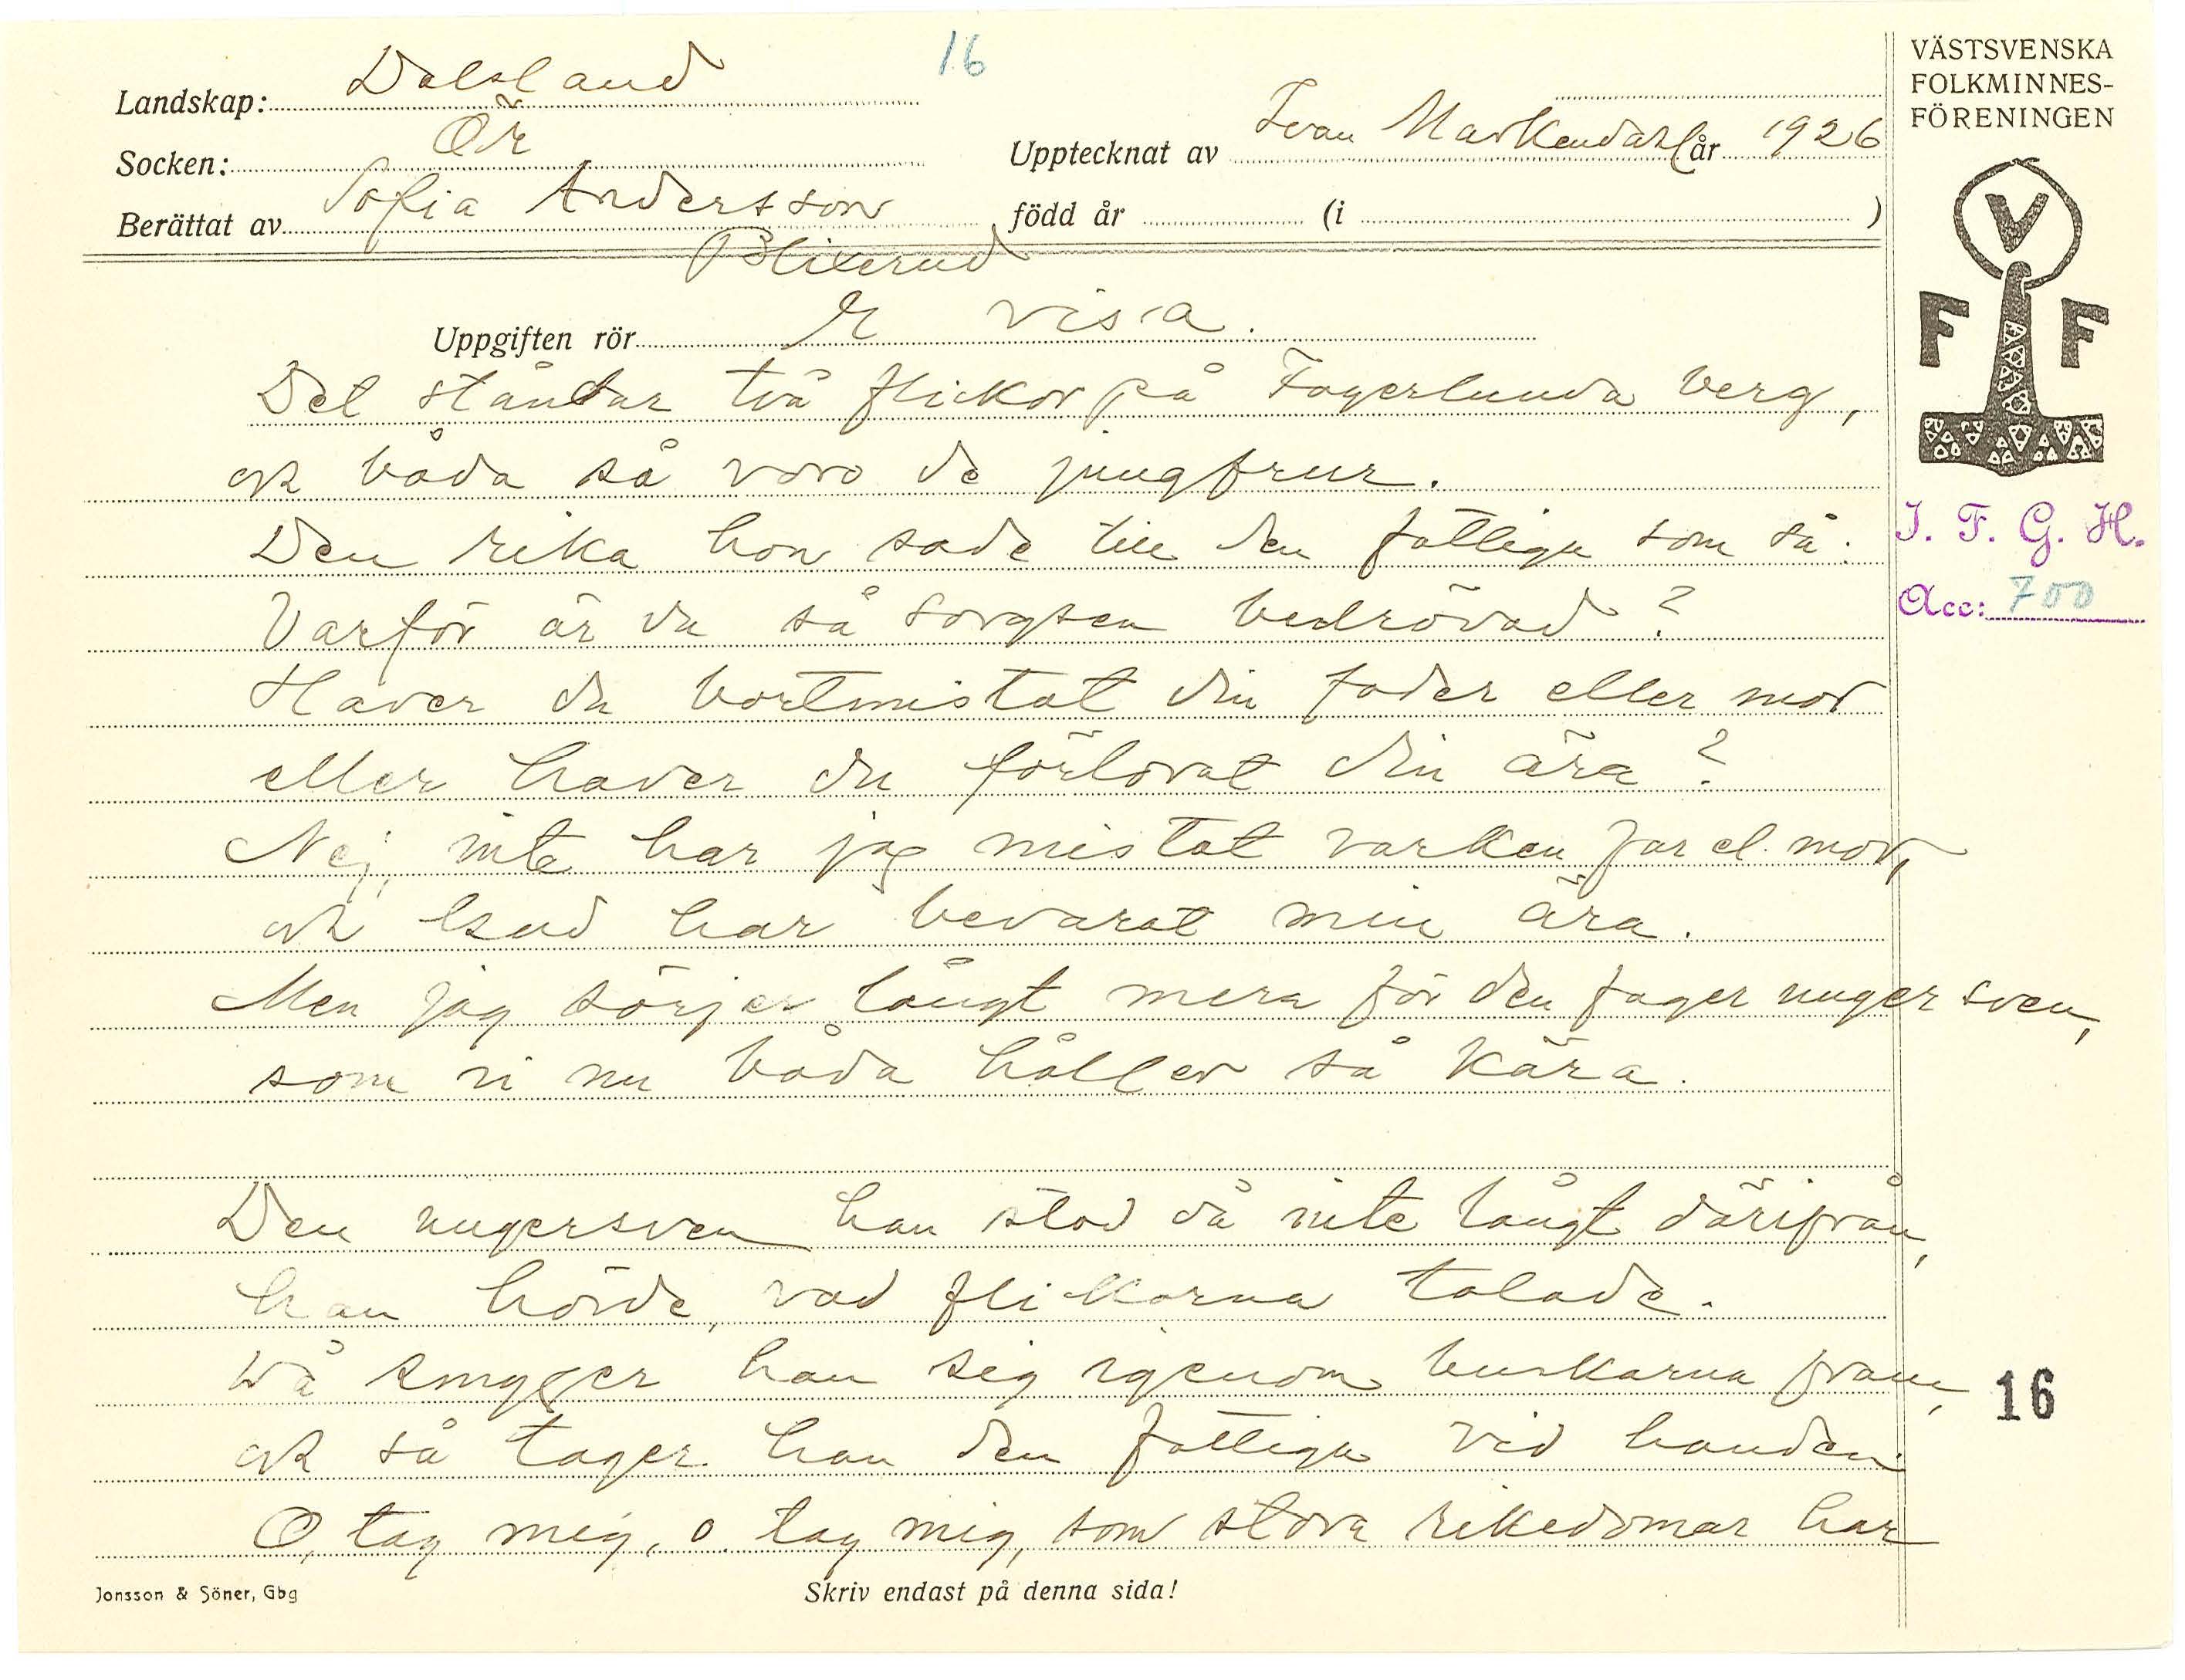 16
VÄSTSVENSKA
FOLKMINNES-
FÖRENINGEN
Landskap: Dalsland
Socken: Ör
Upptecknat av Ivan Markendahl år 1926
Berättat av Sofia Andersson
född år (i )
Blixerud
V
F F
Uppgiften rör E visa.
Det ståndar två flickor på Fagerlunda berg,
och båda så voro de jungfrur.
Den rika hon sade till den fattiga som så:
I. F. G. H.
Acc: 700
Varför är du så sorgsen bedrövad?
Haver du bortmistat din fader eller mor
eller haver du förlovat din ära?
Nej, inte har jag mistat varken far el. mor,
och Gud har bevarat min ära.
Men jag sörjer långt mera för den fager unger sven,
som vi nu båda håller så kära.
Den ungersven han stod då inte långt därifrån,
han hörde, vad flickorna talade.
Då smyger han sig igenom buskarna fram,
16
och så tager han den fattiga vid handen.
O, tag mig, o tag mig, som stora rikedomar har
Jonsson & Söner, Gbg
Skriv endast på denna sida!